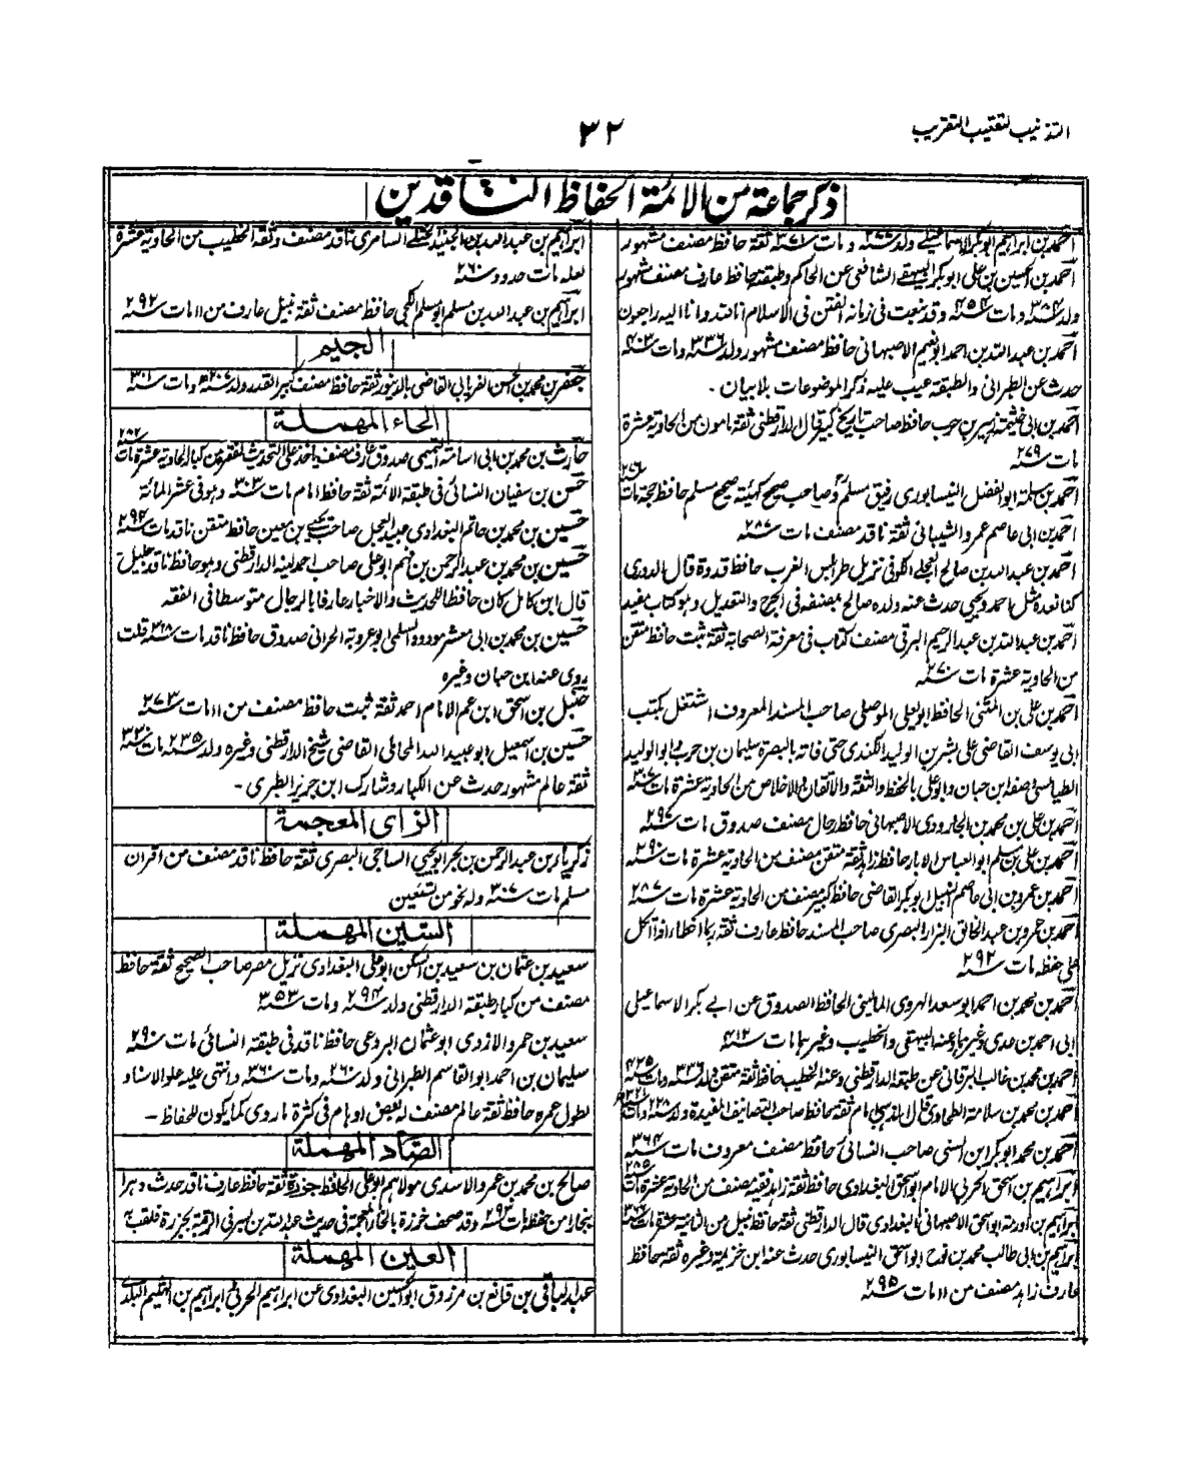 التذنيب لتعقيب التقريب
٣٢
ذكر جماعة من الائمة الحفاظ الناقدين
احمد بن ابراهيم ابوبكر الاسماعيلي ولد سنه ٢٧٧ ومات سنه ٣٧١ ثقة حافظ مصنف مشهور
احمد بن الحسين بن علي ابوبكر البيهقي الشافعي عن الحاكم وطبقته حافظ عارف مصنف مشهور
ولد سنه ٣٨٤ ومات سنه ٤٥٤ وقد نبغت في زمانه الفتن في الاسلام انا لله وانا اليه راجعون
احمد بن عبد الله بن احمد ابونعيم الاصبهاني حافظ مصنف مشهور ولد سنه ٣٣٦ ومات سنه ٤٠٣
حدث عن الطبراني والطبقة عيب عليه ذكر الموضوعات بلا بيان -
احمد بن ابي خيثمة زهير بن حرب حافظ صاحب تاريخ كبير قال الدارقطني ثقة مامون من الحادية عشرة
مات سنه ٢٧٩
احمد بن سلمة ابو الفضل النيسابوري رفيق مسلم وصاحب صحيح كهيئة صحيح مسلم حافظ حجة مات ٢٨٦
احمد بن ابي عاصم عمرو الشيباني ثقة ناقد مصنف مات سنه ٢٨٧
احمد بن عبد الله بن صالح العجلي الكوفي نزيل طرابلس الغرب حافظ قدوة قال الدوري
كنا نعده مثل احمد ويحيى حدث عنه ولده صالح مصنفه في الجرح والتعديل وهو كتاب مفيد
احمد بن عبد الله بن عبد الرحيم البرقي مصنف كتاب في معرفة الصحابة ثقة ثبت حافظ متقن
من الحادية عشرة مات سنه ٢٧٠
احمد بن علي بن المثنى الحافظ ابويعلى الموصلي صاحب المسند المعروف اشتغل بكتب
ابي يوسف القاضي على بشر بن الوليد الكندي حتى فاته بالبصرة سليمان بن حرب وابو الوليد
الطيالسي وصفه ابن حبان وابوعلي بالحفظ والثقة والاتقان والاخلاص من الحادية عشرة مات سنه ٣٠٧
احمد بن علي بن محمد بن الجارودي الاصبهاني حافظ رحال مصنف صدوق مات سنه ٢٩٧
احمد بن علي بن مسلم ابو العباس الابار حافظ زاهد ثقة متقن مصنف من الحادية عشرة مات سنه ٢٩٠
احمد بن عمرو بن ابي عاصم النبيل ابوبكر القاضي حافظ كبير مصنف من الحادية عشرة مات سنه ٢٨٧
احمد بن عمرو بن عبد الخالق البزار البصري صاحب المسند حافظ عارف ثقة ربما اخطا اذا اتكل
على حفظه مات سنه ٢٩٢
احمد بن محمد بن احمد ابوسعد الهروي الماليني الحافظ الصدوق عن ابي بكر الاسماعيلي
ابي احمد بن عدي وغيرهما وعنه البيهقي والخطيب وغيرهما مات سنه ٤١٢
احمد بن محمد بن غالب البرقاني عن طبقة الدارقطني وعنه الخطيب حافظ ثقة متقن ولد سنه ٣٣٦ ومات سنه ٤٢٥
احمد بن محمد بن سلامة الطحاوي امام ثقة حافظ صاحب التصانيف المفيدة ولد سنه ومات ٣٢١
احمد بن محمد ابوبكر ابن السني صاحب النسائي حافظ مصنف معروف مات سنه ٣٦٤
ابراهيم بن اسحق الحربي الامام ابواسحق البغدادي حافظ ثقة زاهد فقيه مصنف من الحادية عشرة مات ٢٨٥
ابراهيم بن اورمة ابواسحق الاصبهاني البغدادي قال الدارقطني ثقة حافظ نبيل من الثانية عشرة مات
ابراهيم بن ابي طالب محمد بن نوح ابواسحق النيسابوري حدث عنه ابن خزيمة وغيره ثقة حافظ
عارف زاهد مصنف من ١١ مات سنه ٢٩٥
ابراهيم بن عبد الله بن الجنيد الختلي السامري ناقد مصنف وثقه الخطيب من الحادية عشرة
لعله مات حدود سنه ٢٦٠
ابراهيم بن عبد الله بن مسلم ابومسلم الكجي حافظ مصنف ثقة نبيل عارف من ١١ مات سنه ٢٩٢
الجيم
جعفر بن محمد بن الحسن الفريابي القاضي بالدينور ثقة حافظ مصنف كبير القدر ولد سنه ٢٠٧ ومات سنه ٣٠١
الحاء المهملة
حارث بن محمد بن ابي اسامة التميمي صدوق عارف مصنف ياخذ على التحديث لفقره من كبار الحادية عشرة مات ٢٨٢
حسن بن سفيان النسائي في طبقة الائمة ثقة حافظ امام مات سنه ٣٠٣ وهو في عشر المائة
حسين بن محمد بن حاتم البغدادي عبيد العجل صاحب يحيى بن معين حافظ متقن ناقد مات سنه ٢٩٤
حسين بن محمد بن عبد الرحمن بن فهم ابوعلي صاحب احمد لينه الدارقطني وهو حافظ ناقد جليل
قال ابن كامل كان حافظا للحديث والاخبار عارفا بالرجال متوسطا في الفقه
حسين بن محمد بن ابي معشر مودود السلمي ابوعروبة الحراني صدوق حافظ ناقد مات سنه ٣١٨ قلت
روى عنه ابن حبان وغيره
حنبل بن اسحق ابن عم الامام احمد ثقة ثبت حافظ مصنف من ١١ مات سنه ٢٧٣
حسين بن اسمعيل ابوعبد الله المحاملي القاضي شيخ الدارقطني وغيره ولد سنه ٢٣٥ مات سنه ٣٣٠
ثقة عالم مشهور حدث عن الكبار وشارك ابن جرير الطبري -
الزاى المعجمة
زكرياء بن عبد الرحمن بن بحر ابويحيى الساجي البصري ثقة حافظ ناقد مصنف من اقران
مسلم مات سنه ٣٠٧ وله نحو من تسعين
السين المهملة
سعيد بن عثمان بن سعيد بن السكن ابوعلي البغدادي نزيل مصر صاحب الصحيح ثقة حافظ
مصنف من كبار طبقة الدارقطني ولد سنه ٢٩٤ ومات سنه ٣٥٣
سعيد بن عمرو الازدي ابوعثمان البردعي حافظ ناقد في طبقة النسائي مات سنه ٢٩٠
سليمان بن احمد ابوالقاسم الطبراني ولد سنه ٢٦٠ ومات سنه ٣٦٠ وانتهى عليه علو الاسناد
لطول عمره حافظ ثقة عالم مصنف له بعض اوهام في كثرة ما روى كما يكون للحفاظ -
الصاد المهملة
صالح بن محمد بن عمرو الاسدي مولاهم ابوعلي الحافظ جزرة ثقة حافظ عارف ناقد حدث دهرا
ببخارا من حفظه مات سنه ٢٩٣ وقد صحف خرزة بالخاء المعجمة في حديث عبد الله بن بسر في الرقية بجزرة فلقب به
العين المهملة
عبد الباقي بن قانع بن مرزوق ابوالحسين البغدادي عن ابراهيم الحربي ابراهيم بن الهيثم البلدي